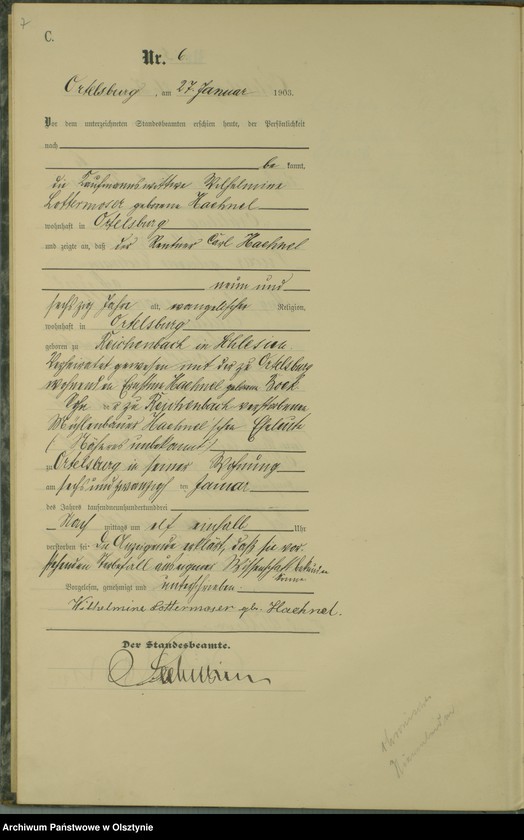 C.
Nr. 6
Ortelsburg, am 27. Januar 1903.
Vor dem unterzeichneten Standesbeamten erschien heute, der Persönlichkeit
nach
be kannt,
die Kaufmannswittwe Wilhelmine
Lottermoser geborene Haehnel
wohnhaft in Ortelsburg
und zeigte an, daß der Rentner Carl Haehnel
neun und
sechszig Jahre alt, evangelischer Religion,
wohnhaft in Ortelsburg
geboren zu Reichenbach in Schlesien
Verheiratet gewesen mit der zu Ortelsburg
wohnenden Ernstine Haehnel geborene Bock
Sohn der zu Reichenbach verstorbenen
Mühlenbauer Haehnel'schen Eheleute
(Näheres unbekannt)
zu Ortelsburg in seiner Wohnung
am sechsundzwanzigsten Januar
des Jahres tausendneunhundertunddrei
Nach mittags um elf einhalb Uhr
verstorben sei. Die Anzeigende erklärt, daß sie vor
stehenden Sterbefall aus eigener Wissenschaft bekunden
könne
Vorgelesen, genehmigt und unterschrieben.
Wilhelmine Lottermoser gb. Haehnel.
Der Standesbeamte.
Archiwum Państwowe w Olsztynie